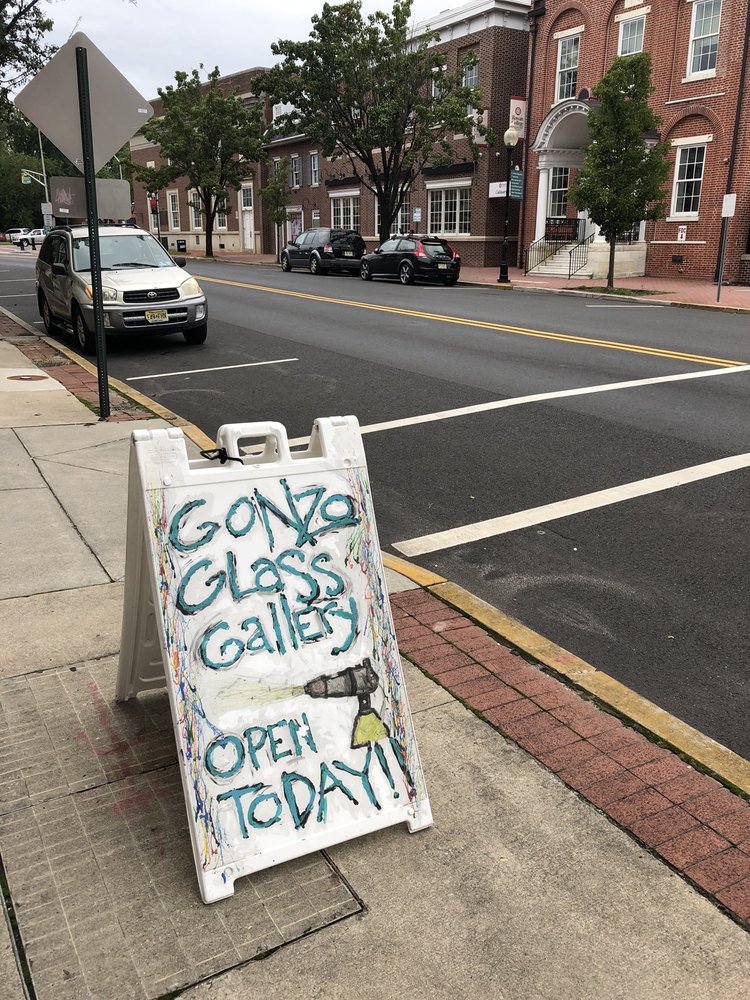 GONZO
GLASS
Gallery
OPEN
TODAY!!